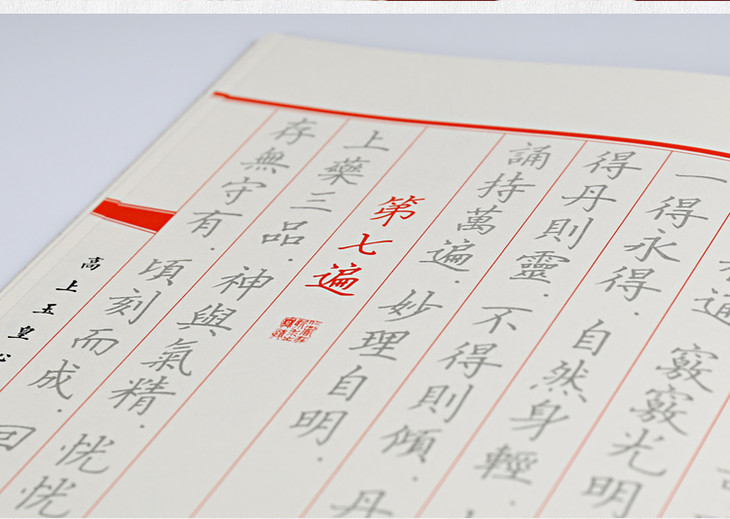 通．竅竅光明
一得永得．自然身輕．
得丹則靈．不得則傾．丹
誦持萬遍．妙理自明．
第七遍
上藥三品．神與氣精．恍恍
存無守有．頃刻而成．回
高上玉皇心